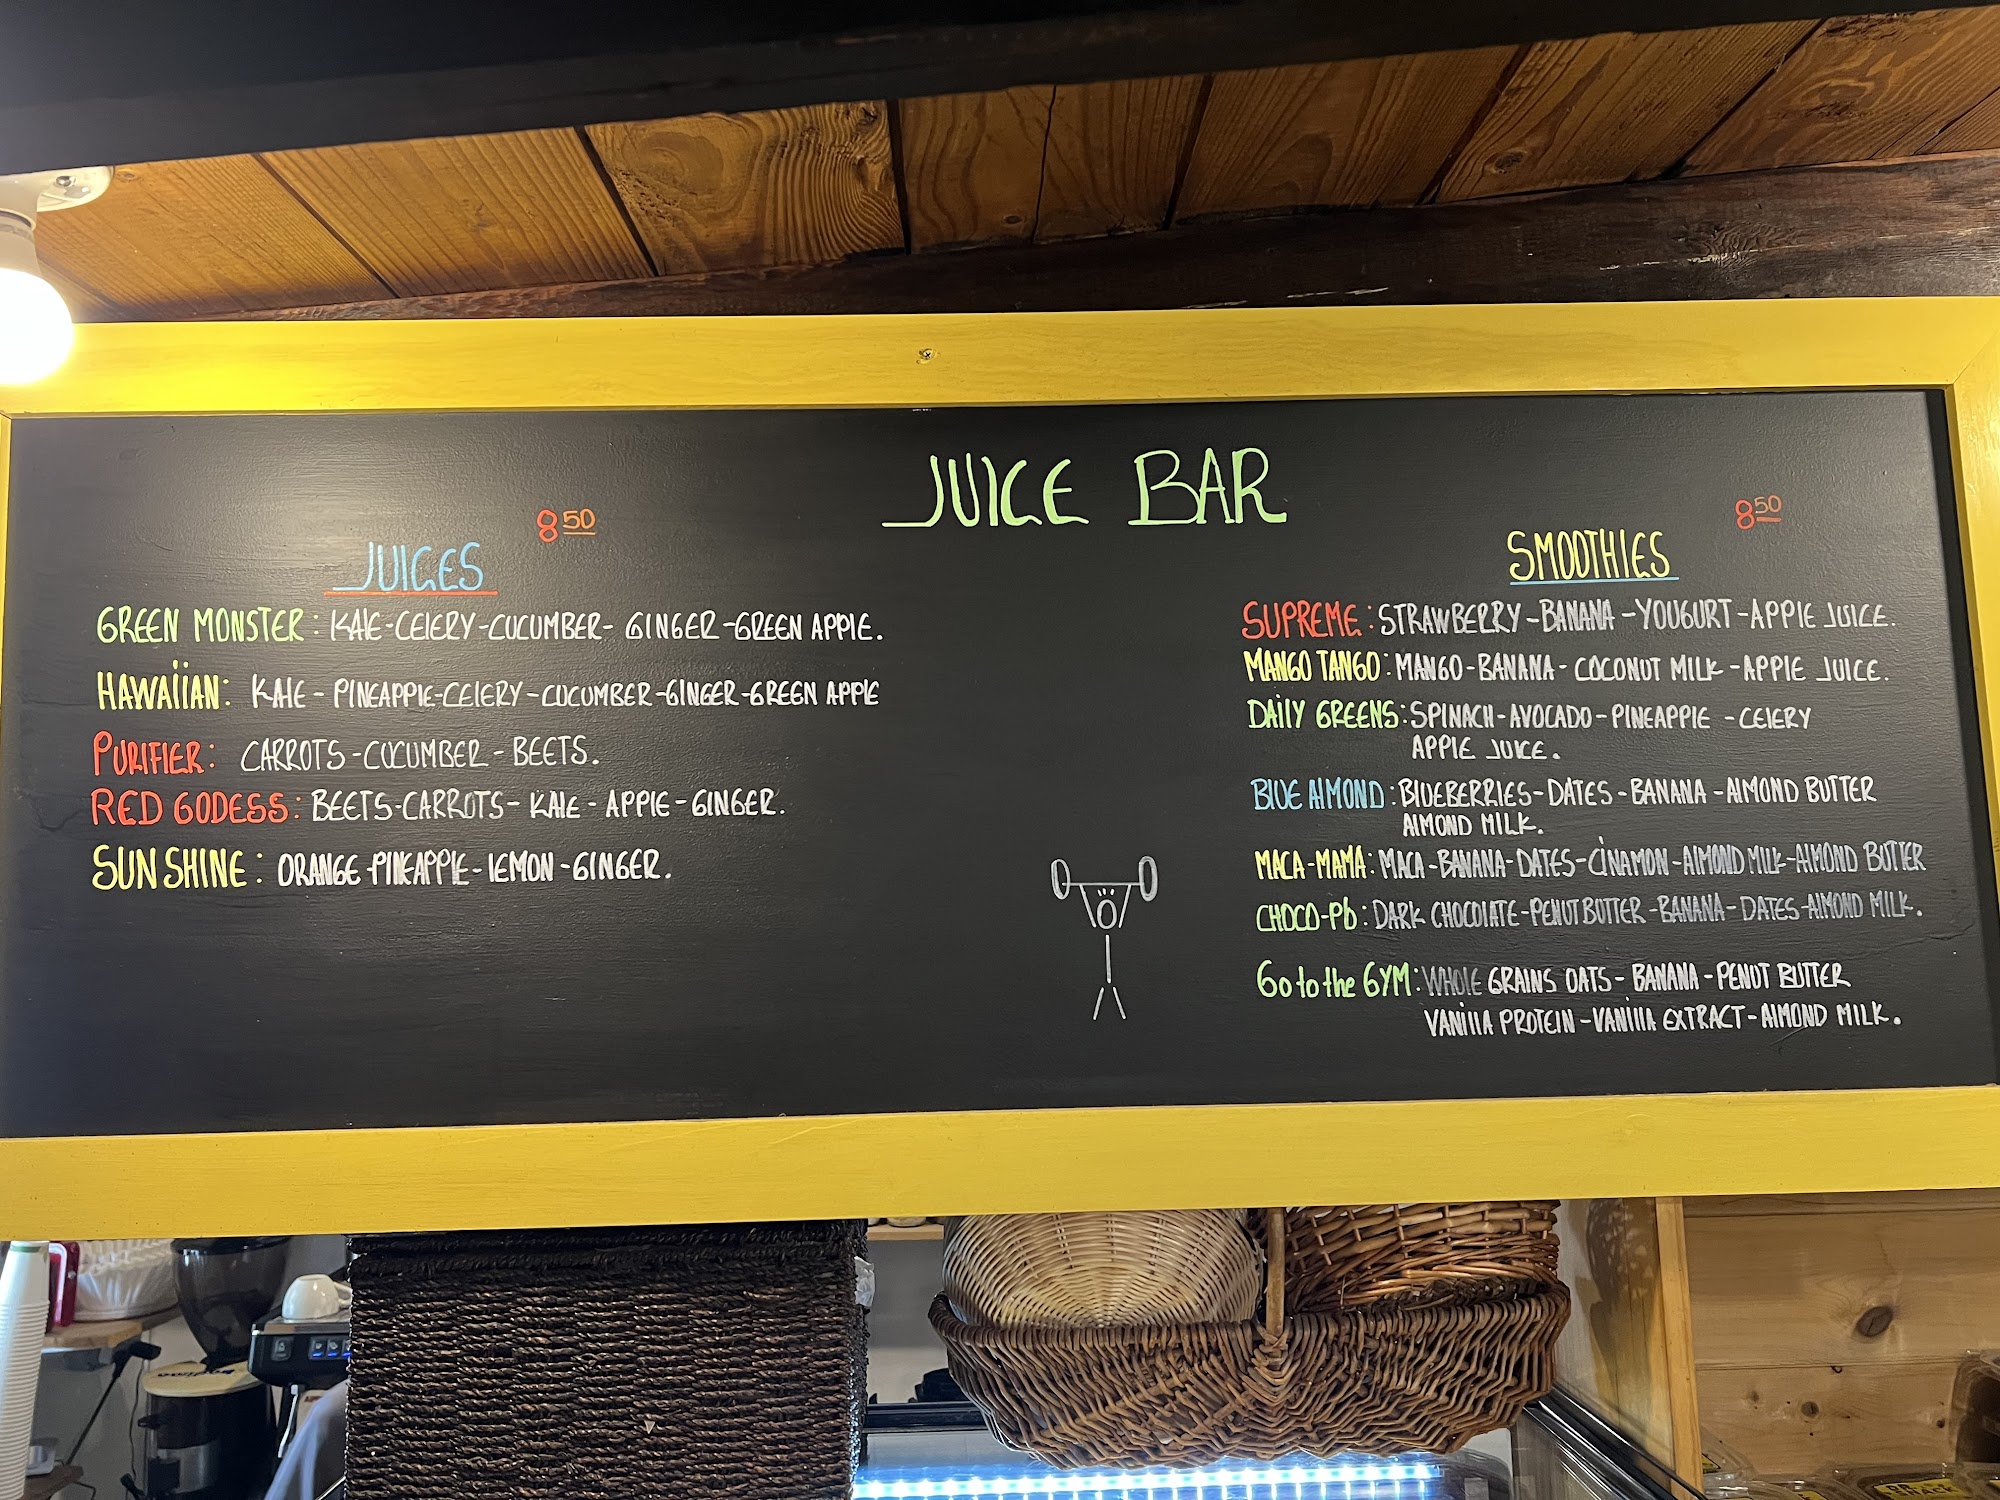 JUICE BAR
8 50
JUICES
GREEN MONSTER: KALE-CELERY-CUCUMBER- GINGER-GREEN APPLE.
HAWAIIAN: KALE- PINEAPPLE-CELERY-CUCUMBER-GINGER-GREEN APPLE
PURIFIER: CARROTS-CUCUMBER-BEETS.
RED GODESS: BEETS-CARROTS- KALE- APPLE-GINGER.
SUN SHINE: ORANGE-PINEAPPLE-LEMON-GINGER.
8 50
SMOOTHIES
SUPREME: STRAWBERRY-BANANA-YOUGURT-APPLE JUICE.
MANGO TANGO: MANGO-BANANA- COCONUT MILK-APPLE JUICE.
DAILY GREENS: SPINACH-AVOCADO-PINEAPPLE -CELERY
APPLE JUICE.
BLUE ALMOND: BLUEBERRIES-DATES-BANANA-ALMOND BUTTER
ALMOND MILK.
MACA-MAMA: MACA-BANANA-DATES-CINAMON-ALMOND MILK-ALMOND BUTTER
CHOCO-Pb: DARK CHOCOLATE-PENUT BUTTER-BANANA-DATES-ALMOND MILK.
Go to the GYM: WHOLE GRAINS OATS-BANANA-PENUT BUTTER
VANILLA PROTEIN-VANILLA EXTRACT-ALMOND MILK.